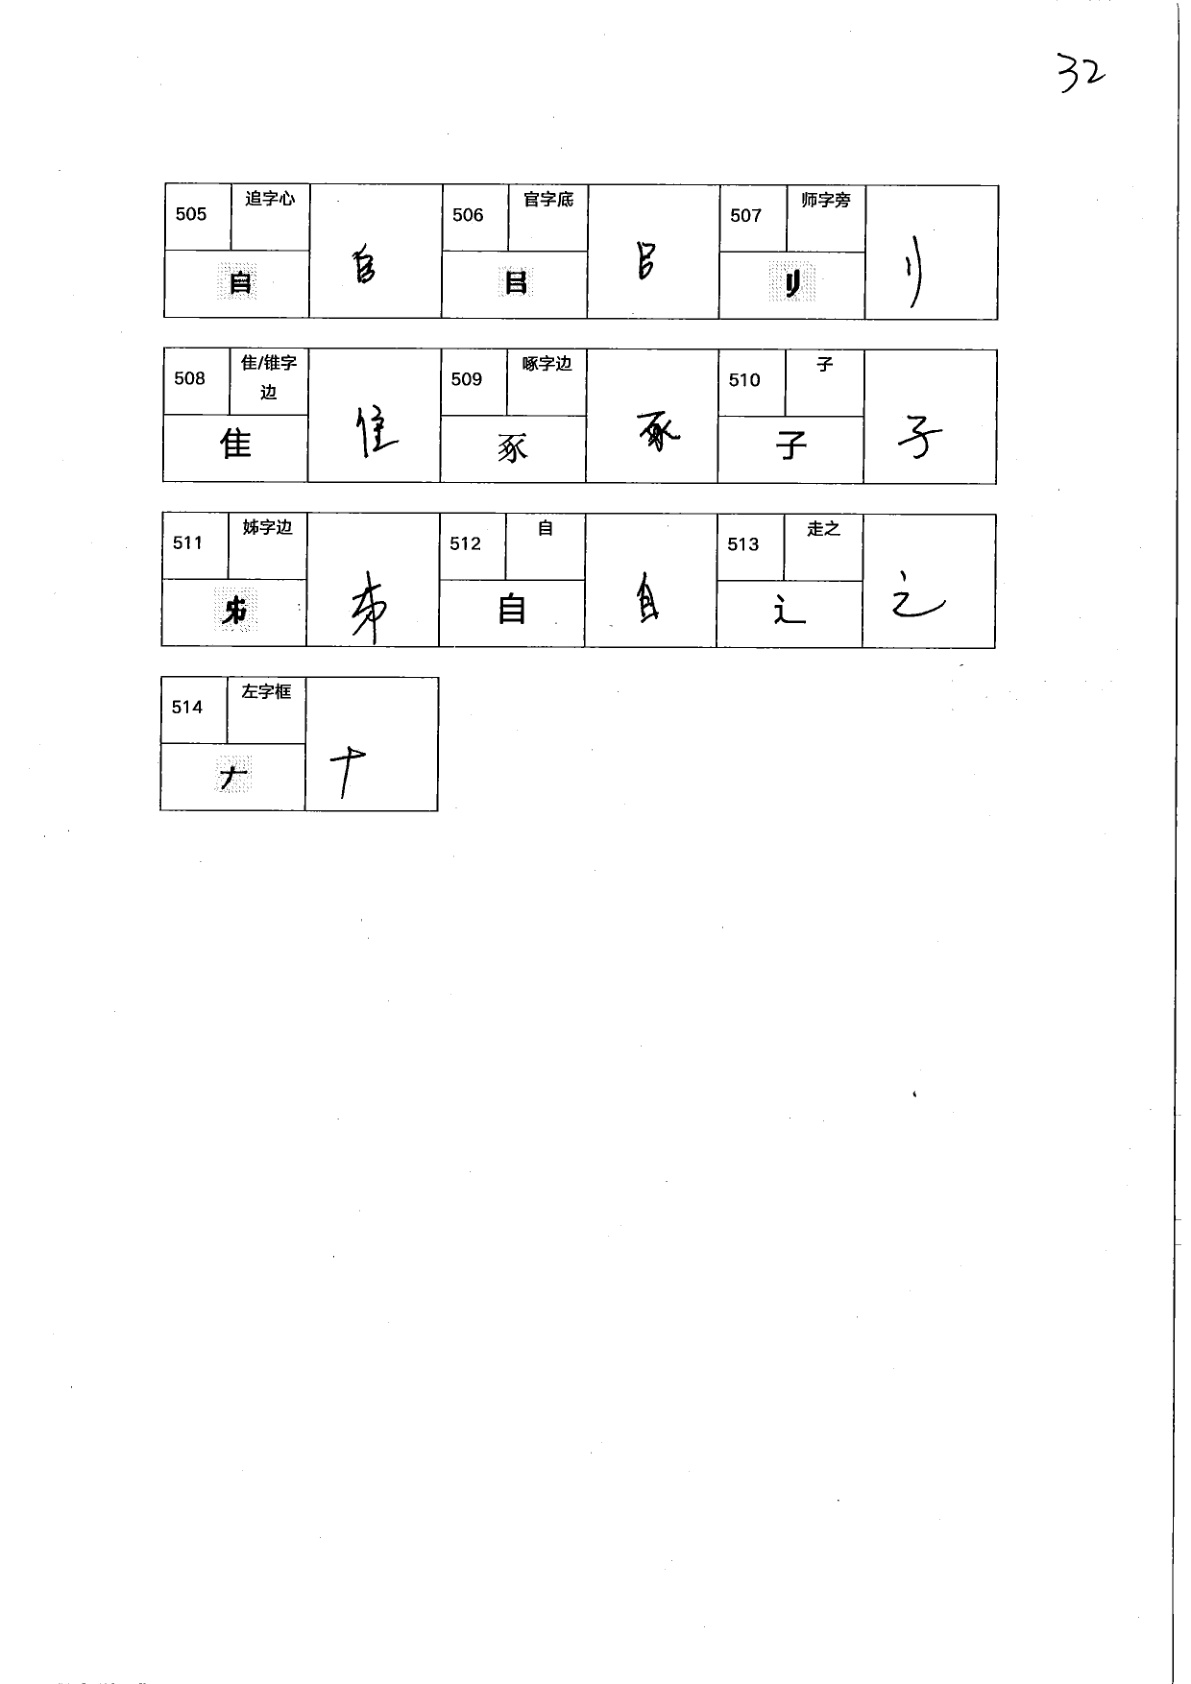 32
505 追字心 𠂤 𠂤 506 官字底 㠯 㠯 507 师字旁 刂 刂
508 隹/锥字边 隹 隹 509 啄字边 豖 豖 510 子 子 子
511 姊字边 512 自 自 自 513 走之 辶 辶
514 左字框 𠂇 𠂇